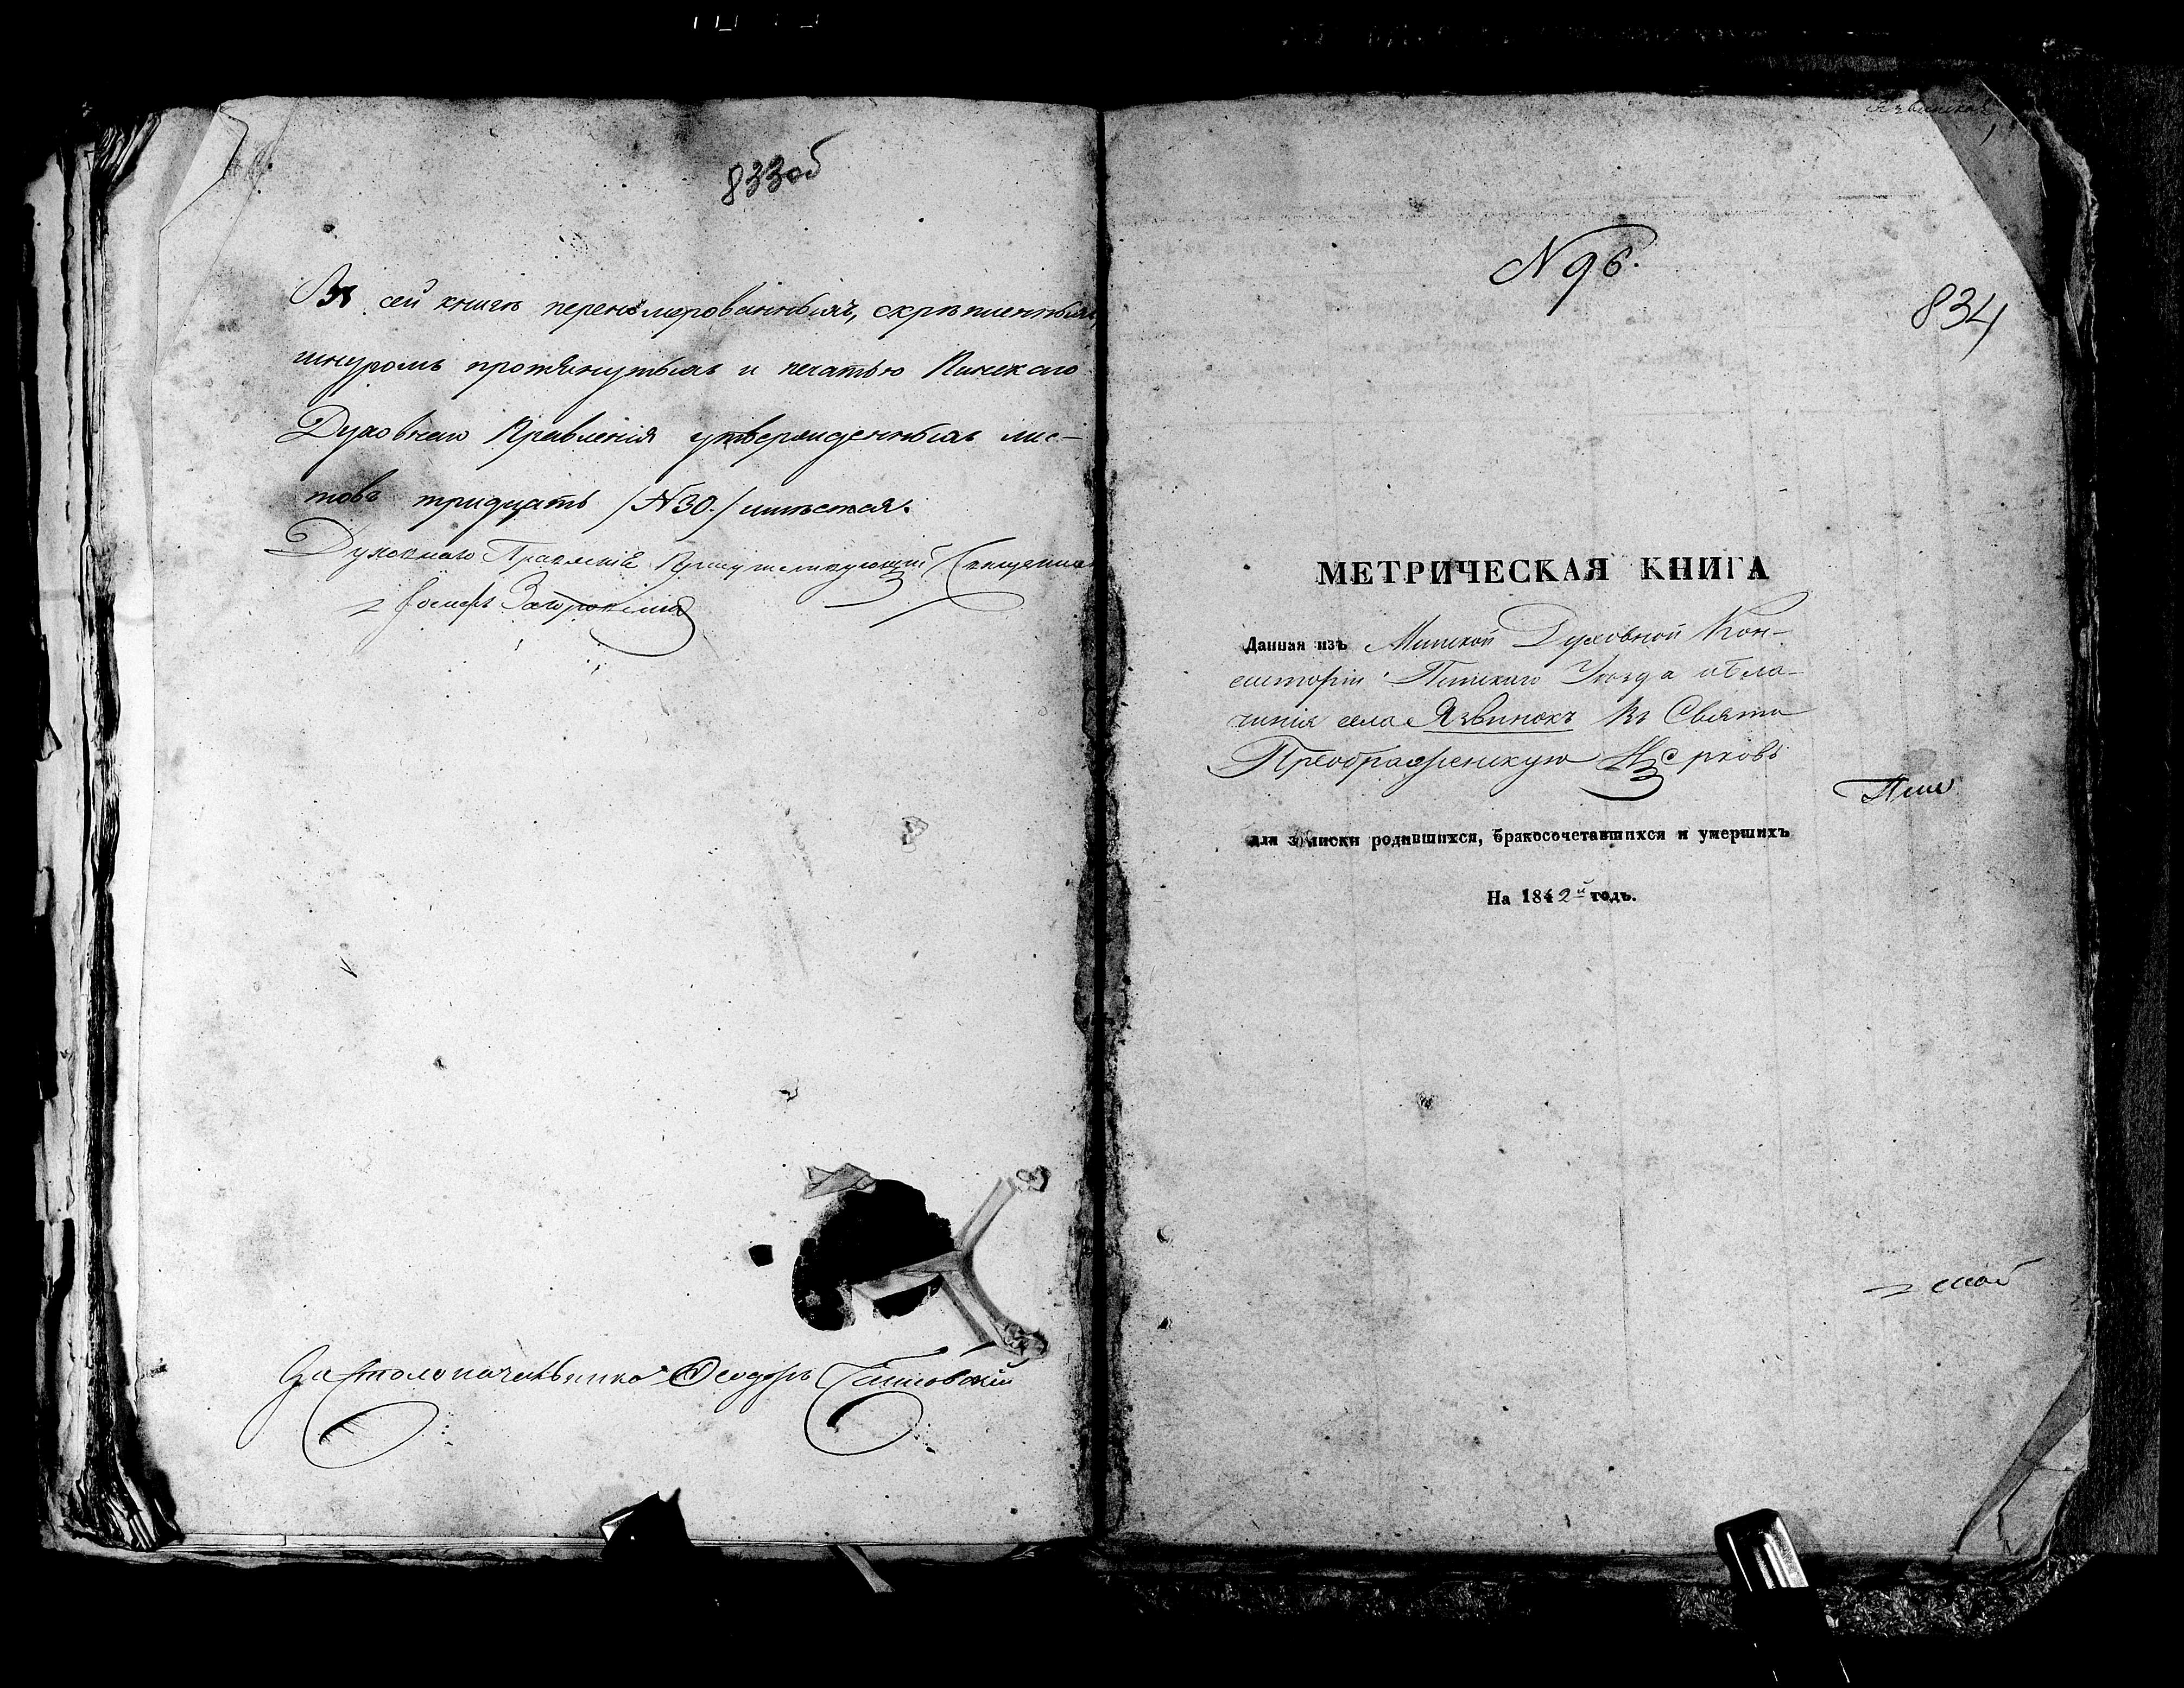 833об
Въ сей книгѣ перенумерованныхъ, скрѣпленныхъ
шнуромъ протянутыхъ и печатью Пинскаго
Духовнаго Правленія утвержденныхъ лис-
товъ тридцать /N30./ имѣется.
Духовнаго Правленія Присутствующій Священник
Іосифъ
За Столоначальника Ѳеодоръ
N 96.
834
МЕТРИЧЕСКАЯ КНИГА
Данная изъ Минской Духовной Кон-
систоріи Пинскаго Уѣзда обла-
чинія села Язвинокъ въ Свято
Преображенскую Церковь
для записки родившихся, бракосочетавшихся и умершихъ
На 1842й годъ.